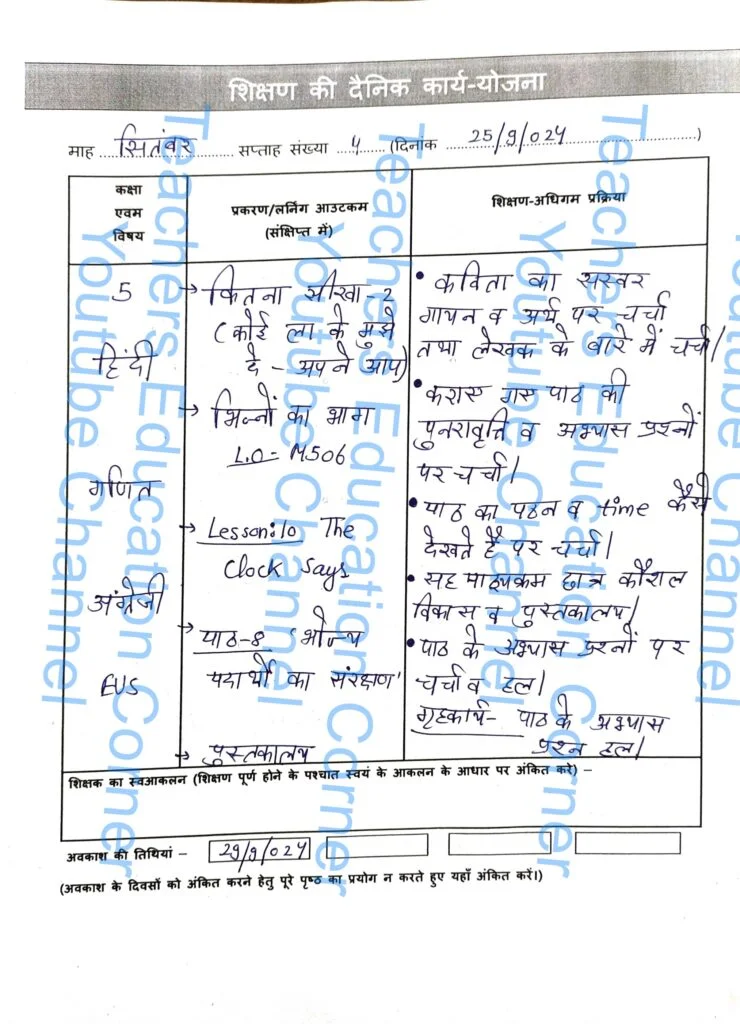 शिक्षण की दैनिक कार्य-योजना
माह सितंबर सप्ताह संख्या 4 (दिनांक 25/9/024)
कक्षा
एवम
विषय
प्रकरण/लर्निंग आउटकम
(संक्षिप्त में)
शिक्षण-अधिगम प्रक्रिया
5
हिंदी
गणित
अंग्रेजी
EVS
→ कितना सीखा-2
(कोई ला के मुझे
दे - अपने आप)
→ भिन्नों का भाग
L.O- M506
→ Lesson:10 The
Clock Says
→ पाठ-8 'भोज्य
पदार्थों का संरक्षण'
→ पुस्तकालय
• कविता का सस्वर
गायन व अर्थ पर चर्चा
तथा लेखक के बारे में चर्चा।
• कराए गए पाठ की
पुनरावृत्ति व अभ्यास प्रश्नों
पर चर्चा।
• पाठ का पठन व time कैसे
देखते हैं पर चर्चा।
• सह पाठ्यक्रम छात्र कौशल
विकास व पुस्तकालय।
• पाठ के अभ्यास प्रश्नों पर
चर्चा व हल।
गृहकार्य- पाठ के अभ्यास
प्रश्न हल।
शिक्षक का स्वआकलन (शिक्षण पूर्ण होने के पश्चात स्वयं के आकलन के आधार पर अंकित करे) –
अवकाश की तिथियां – 29/9/024
(अवकाश के दिवसों को अंकित करने हेतु पूरे पृष्ठ का प्रयोग न करते हुए यहाँ अंकित करें।)
Teachers Education Corner
Youtube Channel
Teachers Education Corner
Youtube Channel
Teachers Education Corner
Youtube Channel
Youtube Channel